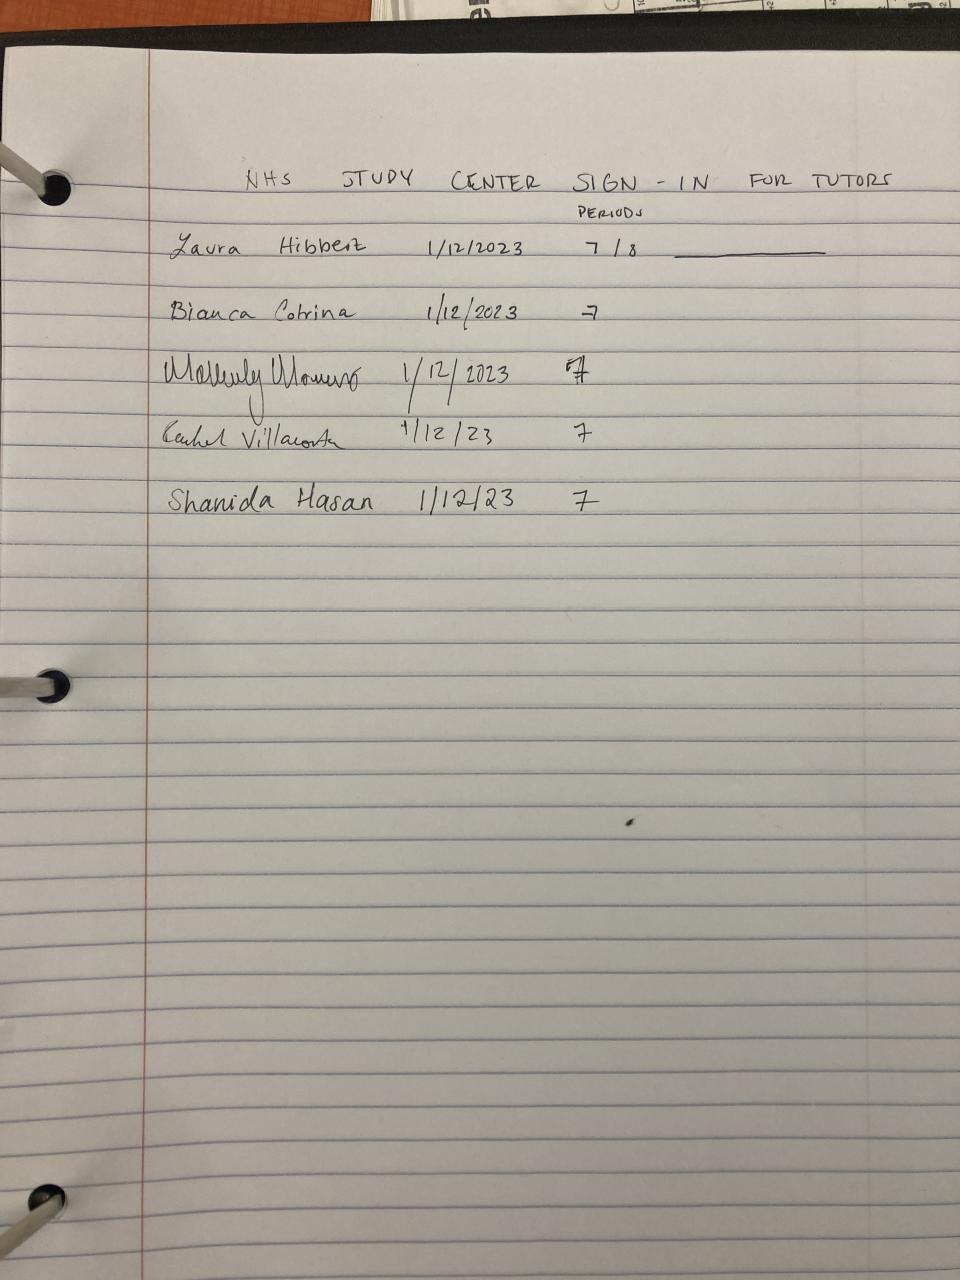 NHS STUDY CENTER SIGN-IN FOR TUTORS
PERIODS
Laura Hibbert 1/12/2023 7/8
Bianca Cotrina 1/12/2023 7
1/12/2023 7
Villacorta 1/12/23 7
Shanida Hasan 1/12/23 7